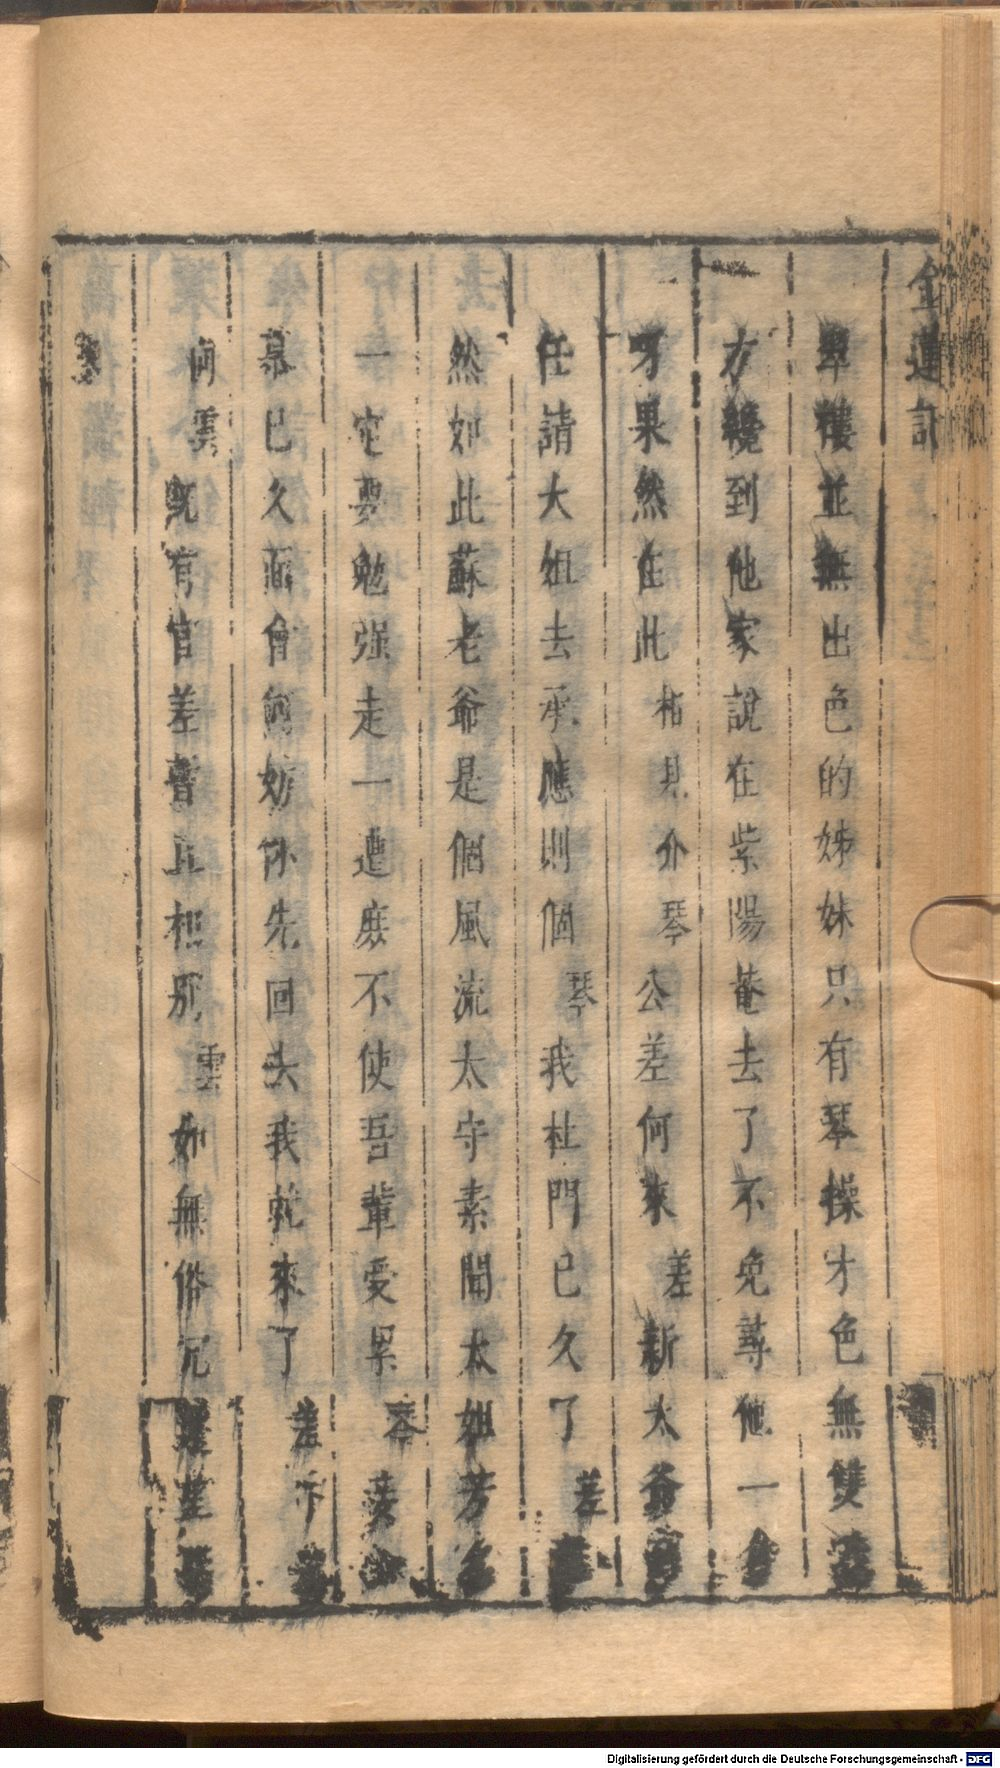 金蓮記
翠樓並無出色的姊妹只有琴操才色無雙
方纔到他家說在紫陽菴去了不免尋他一
呀果然在此 相見介 琴 公差何來 差 新太爺
任請大姐去承應則個 琴 我杜門已久了 差
然如此蘇老爺是個風流太守素聞大姐芳名
一定要勉强走一遭庶不使吾輩受累 琴 妾
慕已久面會何妨你先回去我就來了 差 下
向雲 既有官差暫且相別 雲 如無俗冗
Digitalisierung gefördert durch die Deutsche Forschungsgemeinschaft - DFG